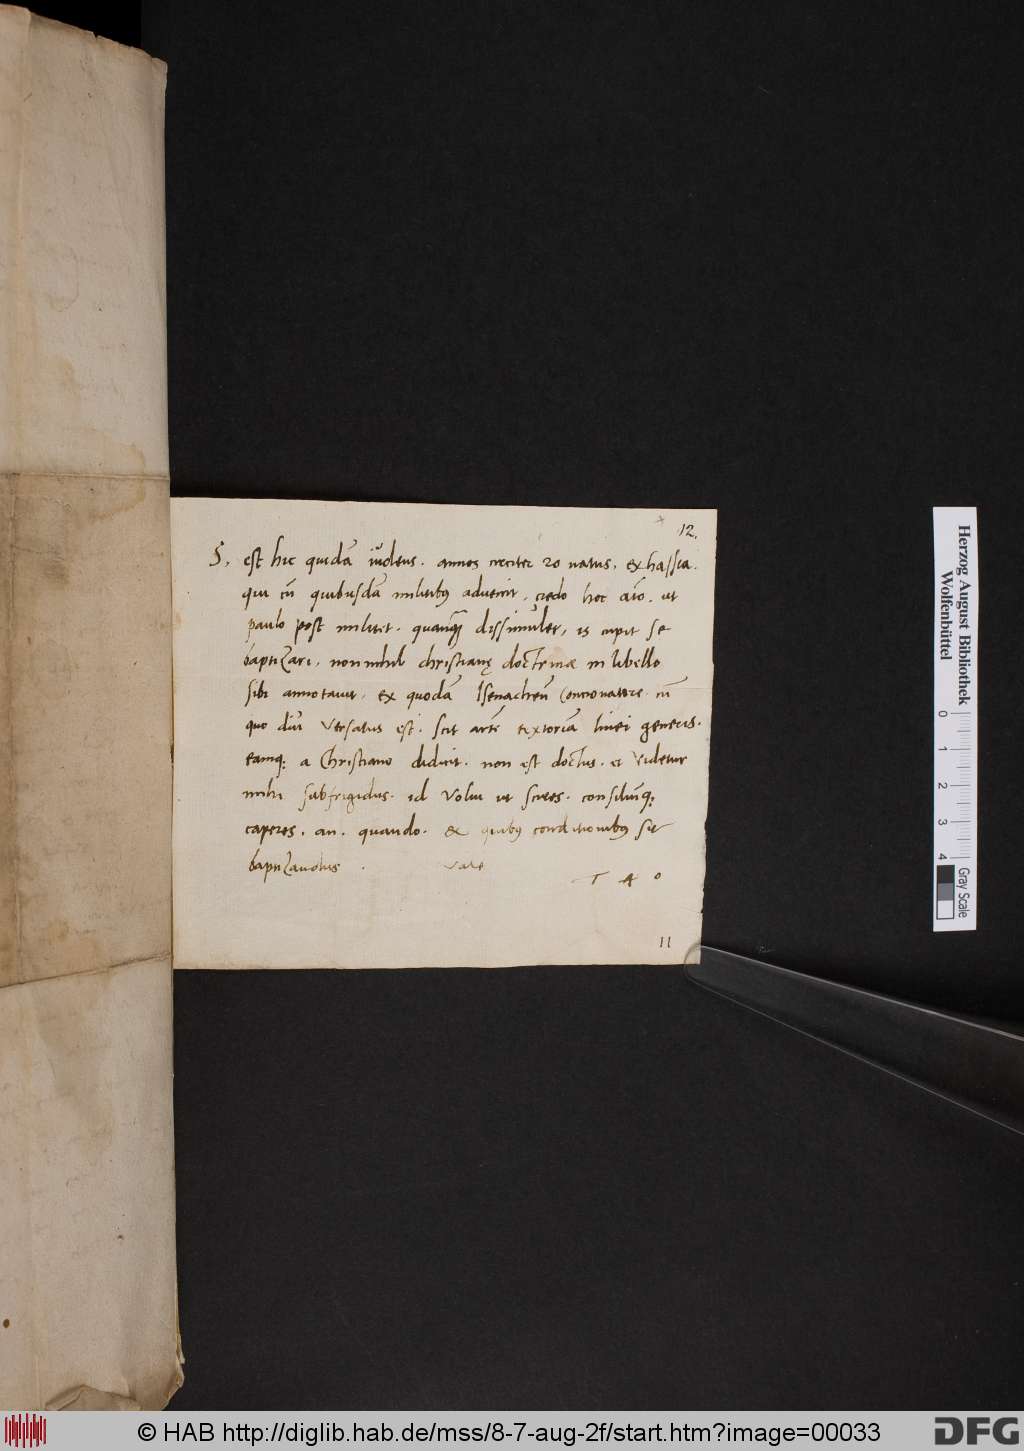 12.
S. est hic quidā iudeus. annos circiter 20 natus, ex hassia.
qui cū quibusdā militibꝰ advenit, credo hoc aīo. ut
paulo post militet. quanq̄ȝ dissimulet, is cupit se
baptizari. nonnihil christianę doctrinæ in libello
sibi annotavit, ex quodā Isenachen̄ Concionatore. cū
quo diu versatus est. scit artē textoriā linei generis.
eamq; a Christiano didicit. non est doctus. et videtur
mihi subfrigidus. id volui ut scires. consiliūq;
caperes. an. quando. ex quibꝰ conditionibꝰ sit
baptizandus. vale
T A O
11
Herzog August Bibliothek
Wolfenbüttel
0 1 2 3 4
Gray Scale
© HAB http://diglib.hab.de/mss/8-7-aug-2f/start.htm?image=00033
DFG